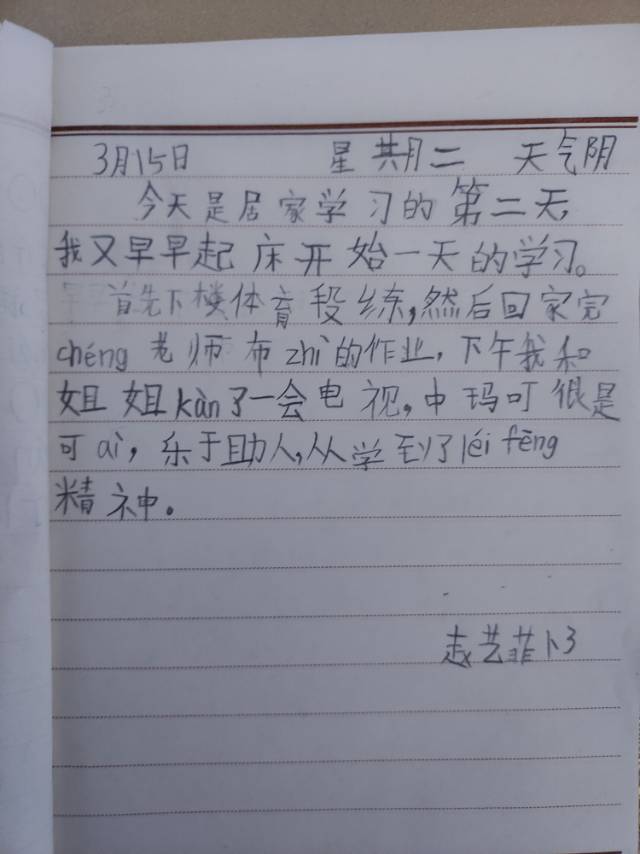 3月15日 星期二 天气阴
今天是居家学习的第二天,
我又早早起床开始一天的学习。
首先下楼体育段练,然后回家完
chéng老师布zhì的作业,下午我和
姐姐kàn了一会电视,中玛叮很是
可ài,乐于助人,从学到了léi fēng
精神。
赵艺菲卜3